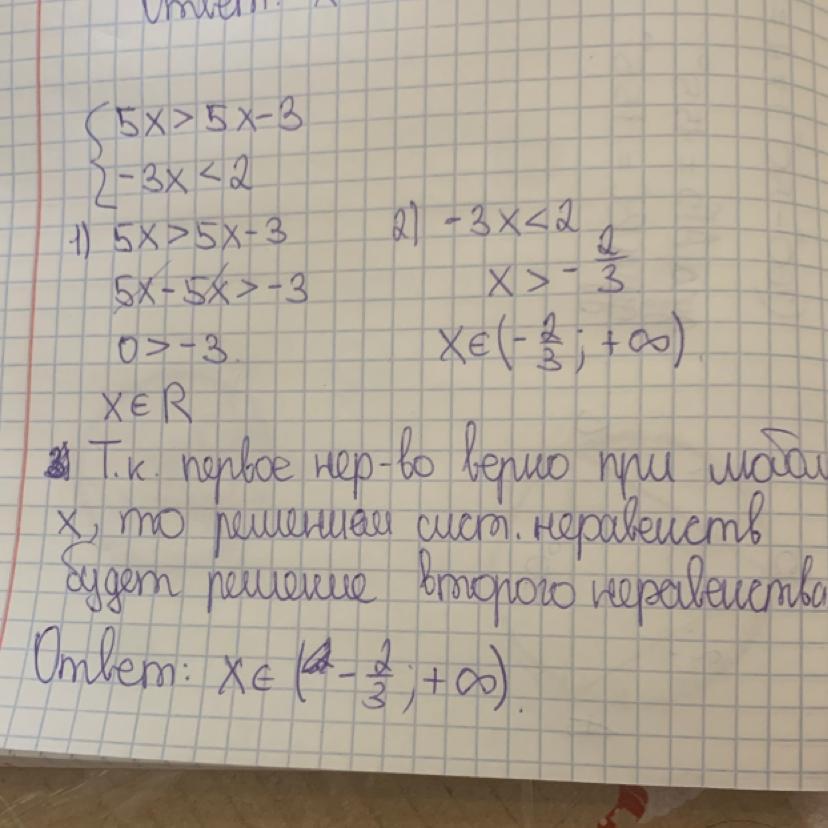 Ответ: x
{ 5x > 5x-3
-3x < 2
1) 5x > 5x-3
5x-5x > -3
0 > -3.
x∈R
2) -3x < 2
x > -2/3
x∈(-2/3; +∞).
Т.к. первое нер-во верно при
x, то решением сист. неравенств
будет решение второго неравенства
Ответ: x∈(-2/3; +∞).